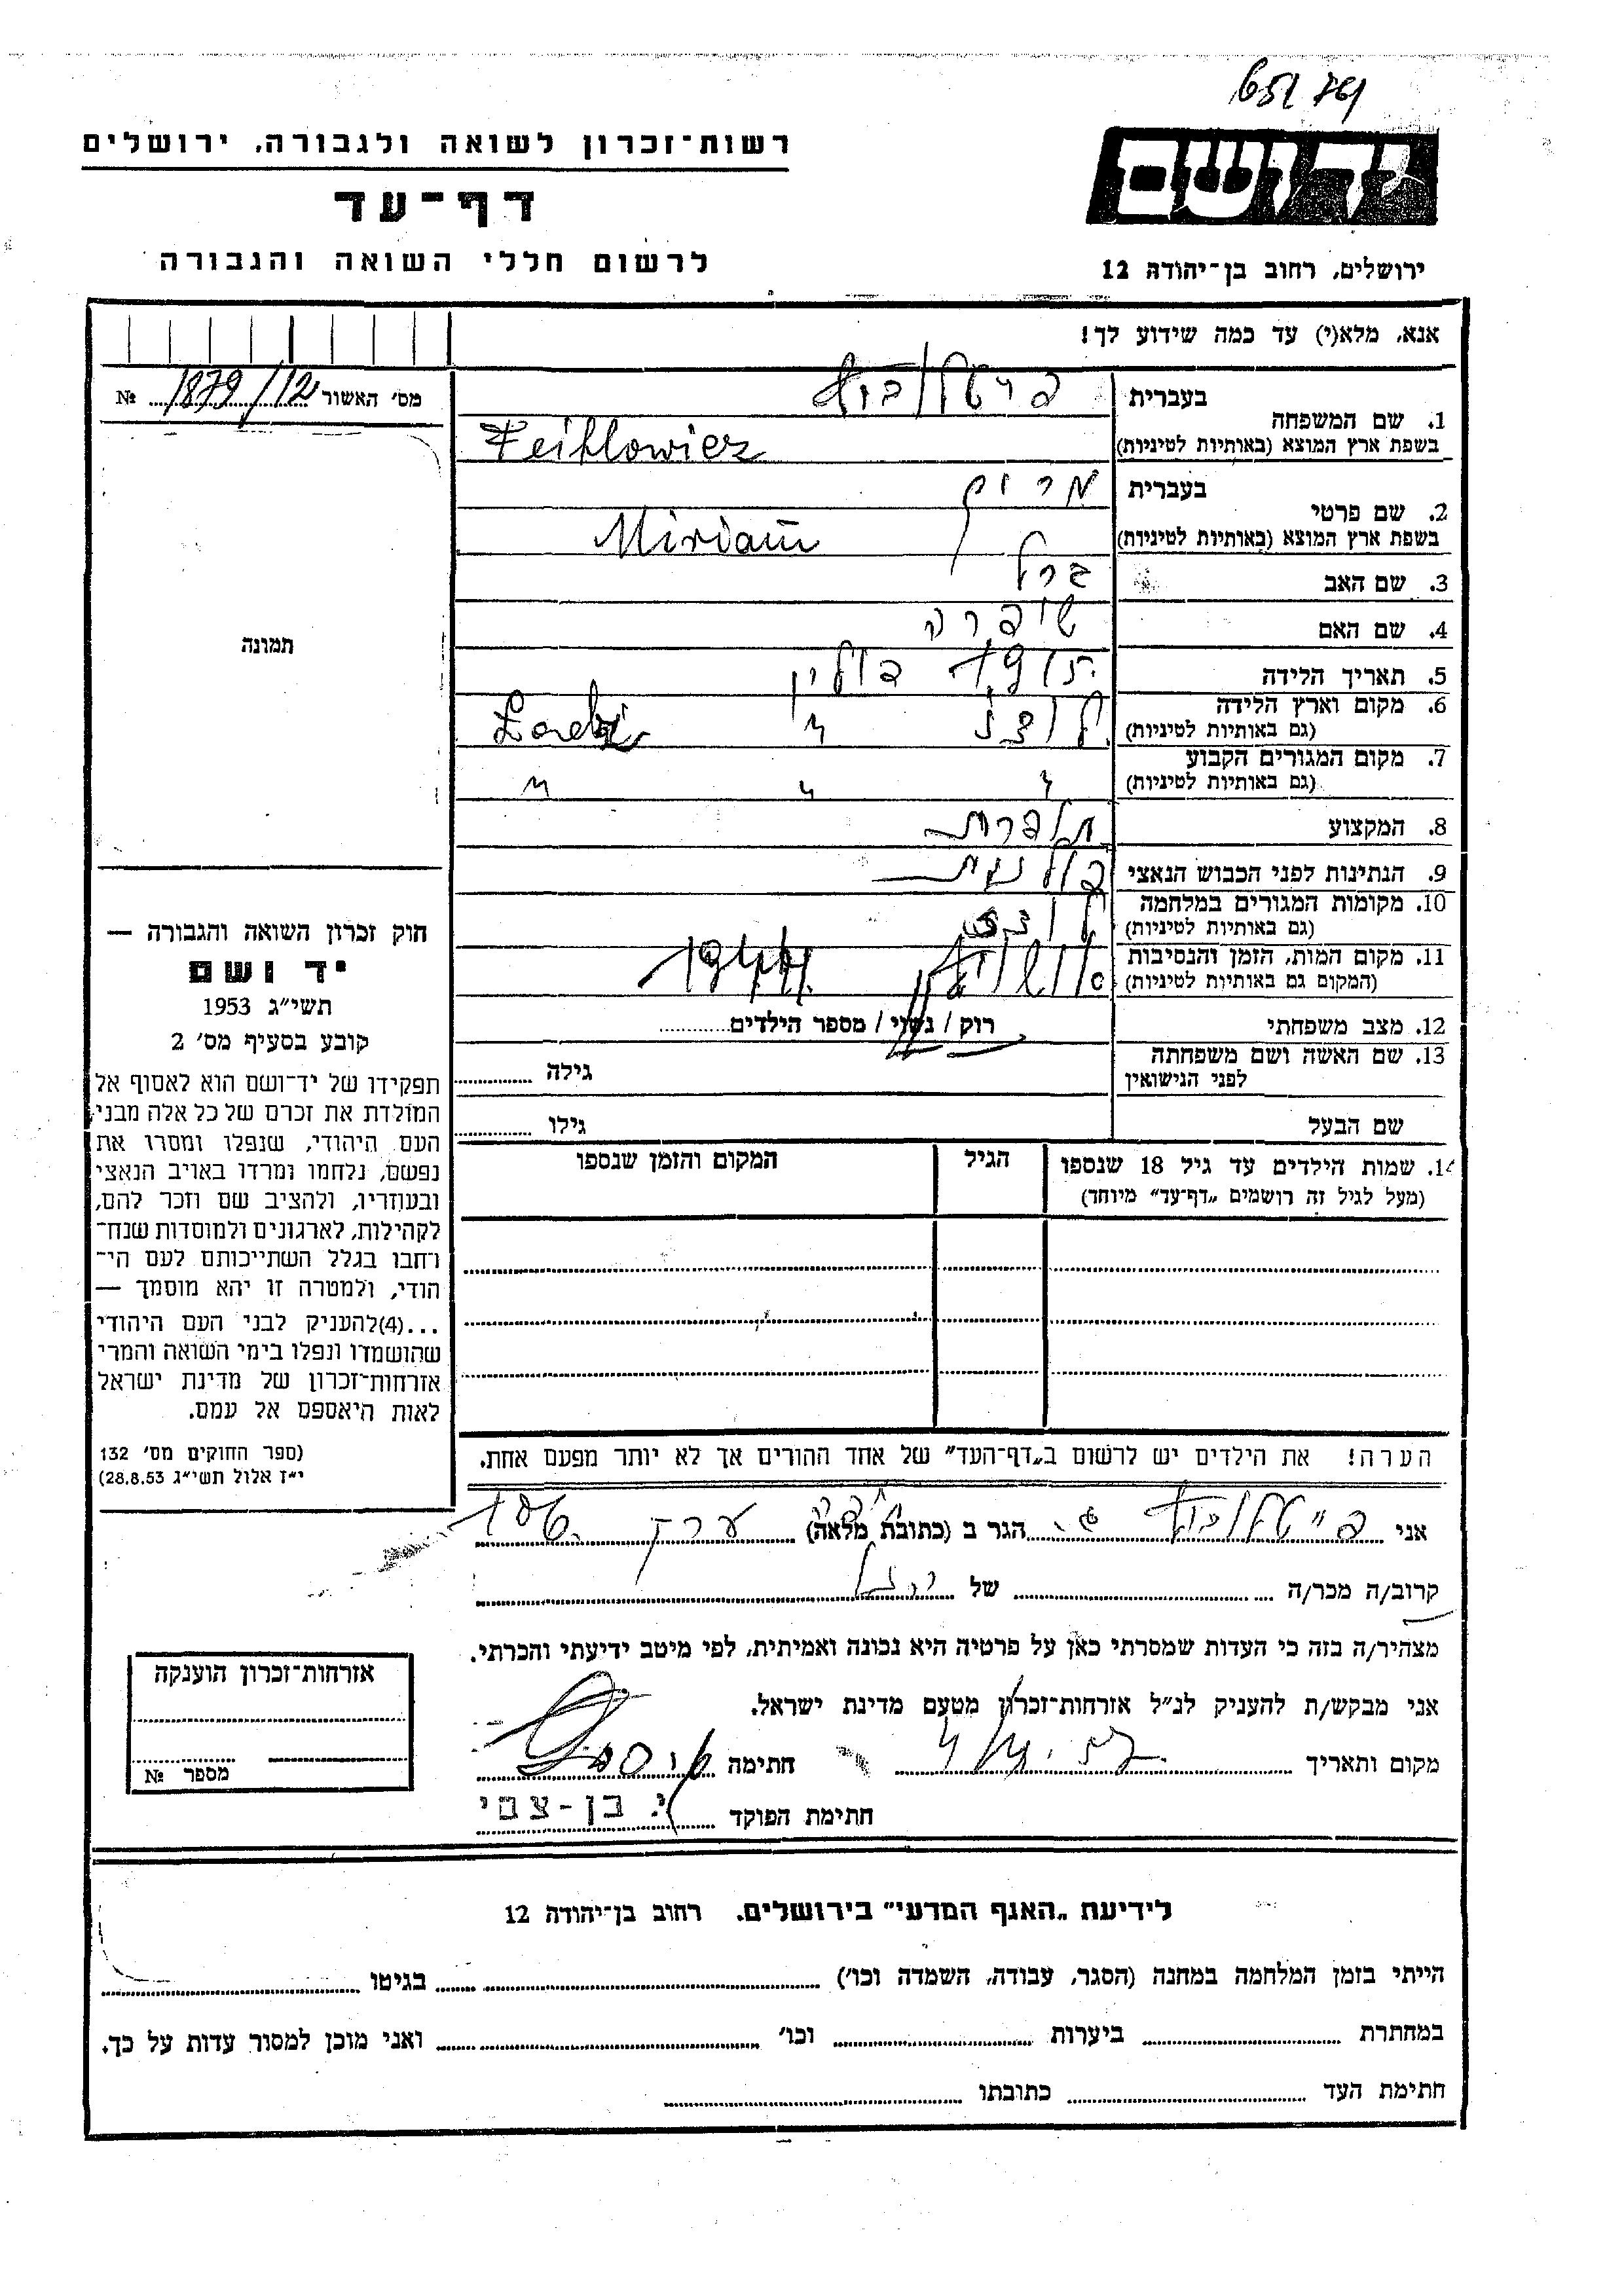 רשות־זכרון לשואה ולגבורה, ירושלים
דף־עד
לרשום חללי השואה והגבורה
יד ושם
ירושלים, רחוב בן־יהודה 12
אנא, מלא(י) עד כמה שידוע לך!
מס׳ האשור 1879/12 №
תמונה
חוק זכרון השואה והגבורה —
יד ושם
תשי״ג 1953
קובע בסעיף מס׳ 2
תפקידו של יד־ושם הוא לאסוף אל
המולדת את זכרם של כל אלה מבני
העם היהודי, שנפלו ומסרו את
נפשם, נלחמו ומרדו באויב הנאצי
ובעוזריו, ולהציב שם וזכר להם,
לקהילות, לארגונים ולמוסדות שנח־
רחבו בגלל השתייכותם לעם הי־
הודי, ולמטרה זו יהא מוסמך —
...(4)להעניק לבני העם היהודי
שהושמדו ונפלו בימי השואה והמרי
אזרחות־זכרון של מדינת ישראל
לאות היאספם אל עמם.
(ספר החוקים מס׳ 132
י״ז אלול תשי״ג 28.8.53)
1. שם המשפחה בעברית
בשפת ארץ המוצא (באותיות לטיניות) Feiklowicz
2. שם פרטי בעברית מרים
בשפת ארץ המוצא (באותיות לטיניות) Miriam
3. שם האב ברל
4. שם האם שיפרה
5. תאריך הלידה 1915 פולין
6. מקום וארץ הלידה לודז׳ ״
(גם באותיות לטיניות)
7. מקום המגורים הקבוע ״ ״ ״
(גם באותיות לטיניות)
8. המקצוע תופרת
9. הנתינות לפני הכבוש הנאצי פולנית
10. מקומות המגורים במלחמה לודז׳
(גם באותיות לטיניות)
11. מקום המות, הזמן והנסיבות 1944
(המקום גם באותיות לטיניות)
12. מצב משפחתי רוק / נשוי / מספר הילדים
13. שם האשה ושם משפחתה
לפני הנישואין גילה
שם הבעל גילו
14. שמות הילדים עד גיל 18 שנספו הגיל המקום והזמן שנספו
(מעל לגיל זה רושמים „דף־עד״ מיוחד)
הערה! את הילדים יש לרשום ב„דף־העד״ של אחד ההורים אך לא יותר מפעם אחת.
אני הגר ב (כתובת מלאה)
קרוב/ה מכר/ה של
מצהיר/ה בזה כי העדות שמסרתי כאן על פרטיה היא נכונה ואמיתית, לפי מיטב ידיעתי והכרתי.
אני מבקש/ת להעניק לנ״ל אזרחות־זכרון מטעם מדינת ישראל.
מקום ותאריך חתימה
חתימת הפוקד י. בן-צבי
אזרחות־זכרון הוענקה
מספר №
לידיעת „האגף המדעי״ בירושלים, רחוב בן־יהודה 12
הייתי בזמן המלחמה במחנה (הסגר, עבודה, השמדה וכו׳) בגיטו
במחתרת ביערות וכו׳ ואני מוכן למסור עדות על כך.
חתימת העד כתובתו